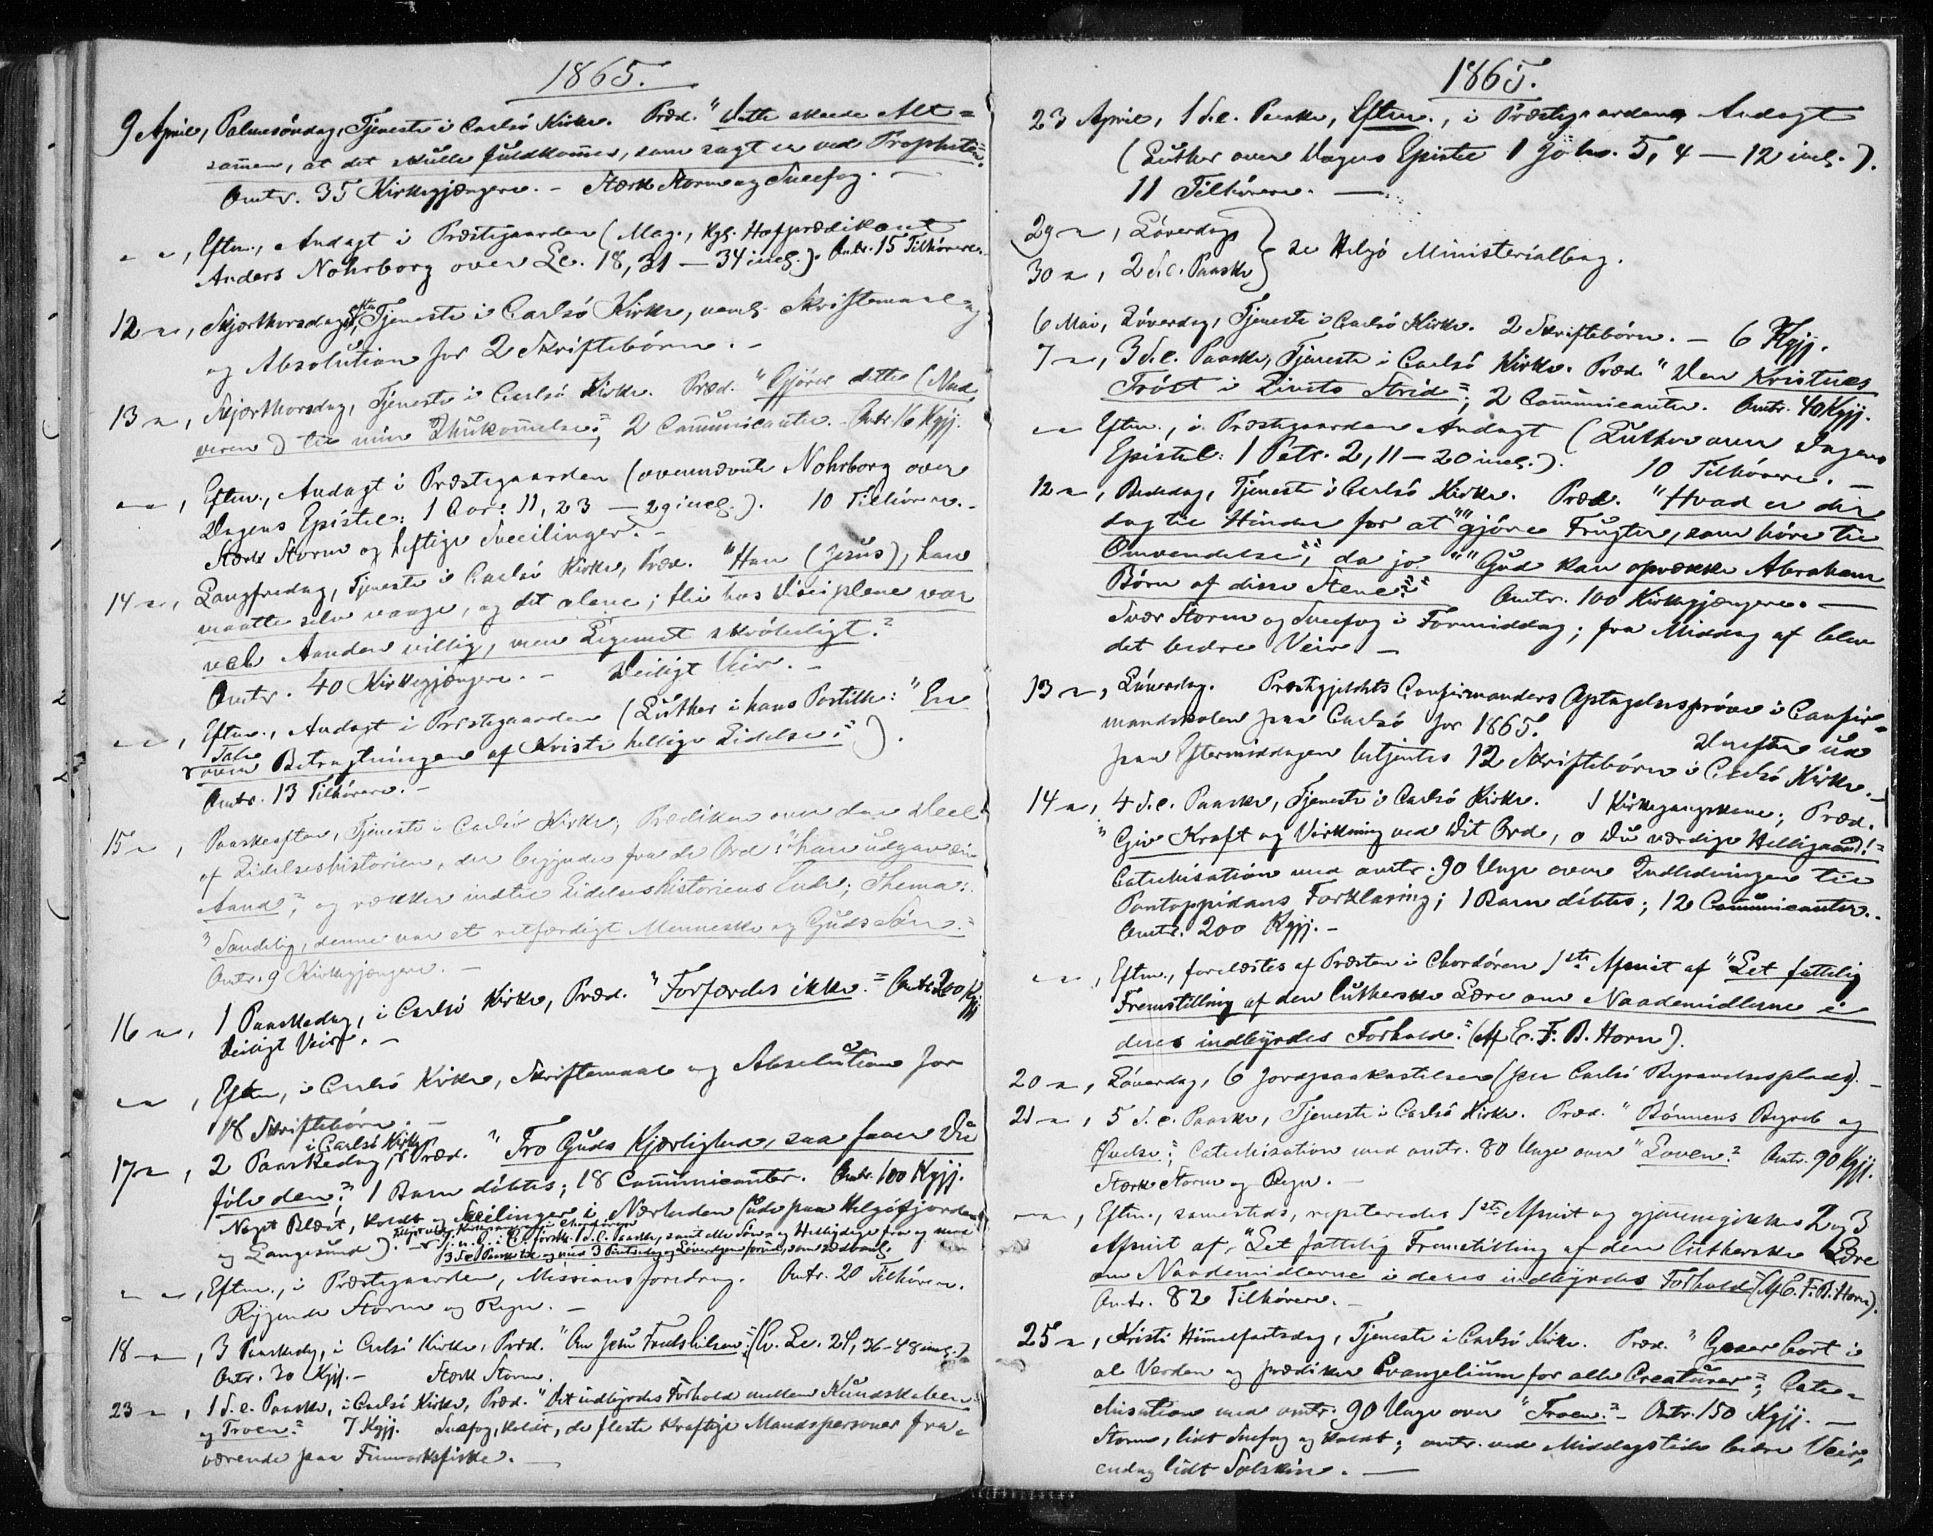 1865.
9 April, Palmesöndag, Tjeneste i Carlsö Kirke. Præd. "Dette skeede Alt=
sammen, at det skulle fuldkommes, som sagt er ved Propheten".
Omtr. 35 Kirkegjængere. – Stærk Storm og Sneefog. –
" ", Eftm., Andagt i Præstegaarden (Mag., Kgl. Hofprædikant
Anders Nohrborg over Lc. 18, 31 – 34 incl.). Omtr. 15 Tilhörere.
12 ", Skjærthorsdags Tjeneste i Carlsö Kirke, navnl. Skriftemaal
og Absolution for 2 Skriftebörn. –
13 ", Skjærthorsdag, Tjeneste i Carlsö Kirke. Præd. "Gjörer dette (Nad=
veren) til min Ihukommelse"; 2 Communicanter. Omtr. 16 Kgjj.
" ", Eftm., Andagt i Præstegaarden (ovennævnte Nohrborg over
Dagens Epistel: 1 Cor: 11, 23 – 29 incl.). 10 Tilhörere. –
Stærk Storm og heftige Sneeilinger. –
14 ", Langfredag, Tjeneste i Carlsö Kirke, Præd. "Han (Jesus), han
maatte selv vaage, og det alene; thi hos Disciplene var
vel Aanden villig, men Legemet skröbeligt."
Omtr. 40 Kirkegjængere. – Deiligt Veir. –
" ", Eftm., Andagt i Præstegaarden (Luther i hans Postille: "En
Tale
over Betragtningen af Kristi hellige Lidelse").
Omtr. 13 Tilhörere. –
15 ", Paaskeaften, Tjeneste i Carlsö Kirke; Prædiken over den Deel
af Lidelseshistorien, der begynder fra de Ord: "han udgav sin
Aand", og rækker indtil Lidelseshistoriens Ende; Thema:
"Sandelig, denne var et retfærdigt Menneske og Guds Sön."
Omtr. 9 Kirkegjængere. –
16 ", 1 Paaskedag, i Carlsö Kirke, Præd. "Forfærdes ikke." Omtr. 200 Kgjj.
Deiligt Veir. –
" ", Eftm., i Carlsö Kirke, Skriftemaal og Absolution for
18 Skriftebörn. –
i Carlsö Kirke
17 ", 2 Paaskedag, Præd. "Tro Guds Kjærlighed, saa faaer Du
föle den." 1 Barn döbtes; 18 Communicanter. Omtr. 100 Kgjj.
Noget Blæst, koldt og Sneeilinger i Nærheden (ude paa Helgöfjorden
og Langesund).
" ", Eftm., i Præstegaarden, Missionsforedrag. Omtr. 20 Tilhörere.
Rygende Storm og Regn. –
18 ", 3 Paaskedag, i Carlsö Kirke, Præd. "Om Jesu Fredshilsen" (cfr. Lc. 24, 36–48 incl.)
Omtr. 30 Kgjj. – Stærk Storm.
23 ", 1 S. e. Paaske, i Carlsö Kirke, Præd. "Det indbyrdes Forhold mellem Kundskaben
og Troen." 7 Kgjj. Sneefog, koldt, de fleste kraftige Mandspersoner fra=
værende paa Finmarksfiske. –
1865.
23 April, 1 S. e. Paaske, Eftm., i Præstegaarden Andagt
(Luther over Dagens Epistel 1 Johs. 5, 4 – 12 incl.).
11 Tilhörere. –
29 ", Löverdag
30 ", 2 S. e. Paaske
se Helgö Ministerialbog.
6 Mai, Löverdag, Tjeneste i Carlsö Kirke. 2 Skriftebörn. – 6 Kgjj.
7 ", 3 S. e. Paaske, Tjeneste i Carlsö Kirke. Præd. "Den Kristnes
Tröst i Livets Strid"; 2 Communicanter. Omtr. 40 Kgjj.
" " Eftm., i Præstegaarden Andagt (Luther over Dagens
Epistel: 1 Petr. 2, 11 – 20 incl.). 10 Tilhörere. –
12 ", Bededag, Tjeneste i Carlsö Kirke. Præd. "Hvad er der
dog til Hinder for at ""gjöre Frugter, som höre til
Omvendelse"", da jo ""Gud kan opvække Abraham
Börn af disse Stene""" Omtr. 100 Kirkegjængere. –
Svær Storm og Sneefog i Formiddag; fra Middag af blev
det bedre Veir. –
13 ", Löverdag. Præstegjeldets Confirmanders Optagelsespröve i Confir=
mandskolen paa Carlsö for 1865. Derefter ud
paa Eftermiddagen betjentes 12 Skriftebörn i Carlsö Kirke. –
14 ", 4 S. e. Paaske, Tjeneste i Carlsö Kirke. 1 Kirkegangskone; Præd.
"Giv Kraft og Virkning ved Dit Ord, o Du værdige Helligaand!"
Catechisation med omtr. 90 Unge over Indledningen til
Pontoppidans Forklaring; 1 Barn döbtes; 12 Communicanter.
Omtr. 200 Kgjj. –
" ", Eftm., forelæstes af Præsten i Chordören 1ste Afsnit af "Let fattelig
Fremstilling af den lutherske Lære om Naademidlerne i
deres indbyrdes Forhold." (Af E. F. B. Horn).
20 ", Löverdag, 6 Jordpaakastelser (paa Carlsö Begravelsesplads). –
21 ", 5 S. e. Paaske, Tjeneste i Carlsö Kirke. Præd. "Bönnens Begreb og
Övelse"; Catechisation med omtr. 80 Unge over "Loven." Omtr. 90 Kgjj.
Stærk Storm og Regn. –
" ", Eftm., samesteds, repeteredes 1ste Afsnit og gjennemgikkes 2 og 3
Afsnit af "Let fattelig Fremstilling af den lutherske Lære
om Naademidlerne i deres indbyrdes Forhold" (Af E. F. B. Horn).
Omtr. 82 Tilhörere. –
25 ", Kristi Himmelfartsdag, Tjeneste i Carlsö Kirke. Præd. "Gaaer bort i
al Verden og prædiker Evangelium for alle Creaturer"; Cate=
chisation med omtr. 90 Unge over "Troen." – Omtr. 150 Kgjj. –
Storm, lidt Sneefog og koldt; omtr. ved Middagstide bedre Veir,
endog lidt Solskin. –